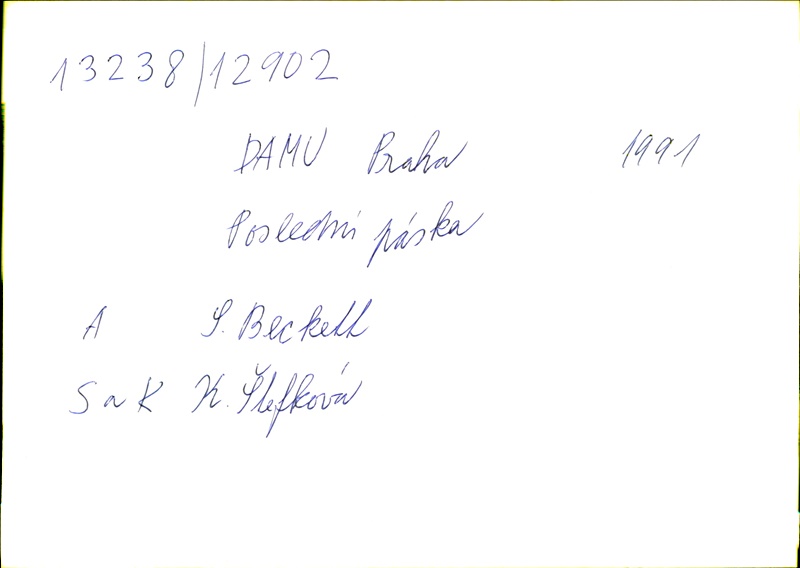 13238/12902
DAMU Praha 1991
Poslední páska
A S. Beckett
S a K K. Štefková